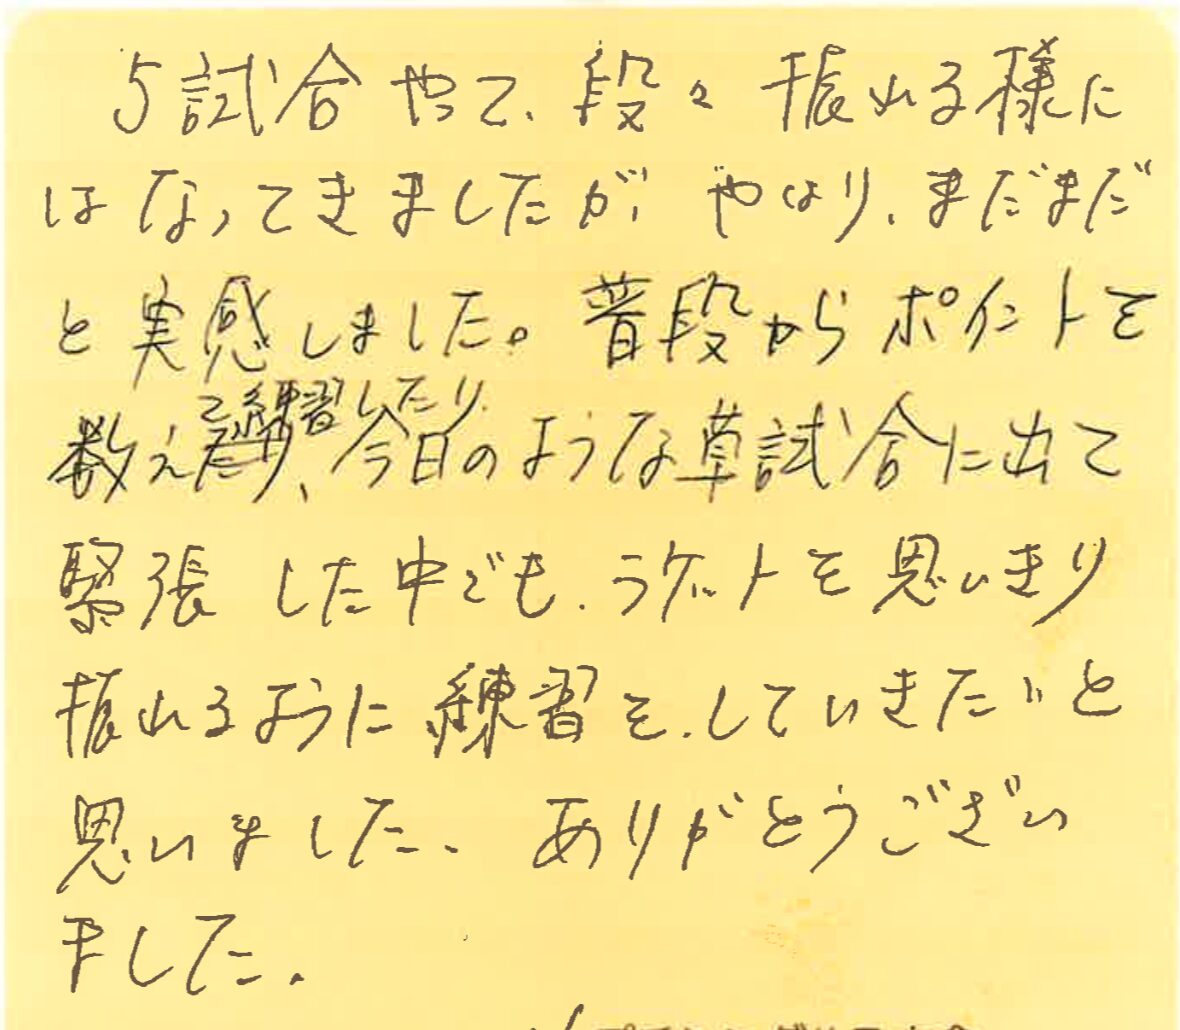 5試合やって、段々振れる様に
はなってきましたが、やはり、まだまだ
と実感しました。普段からポイントを
て練習したり
数えたり、今日のような草試合に出て
緊張した中でも、ラケットを思いきり
振れるように練習を、していきたいと
思いました、ありがとうござい
ました。